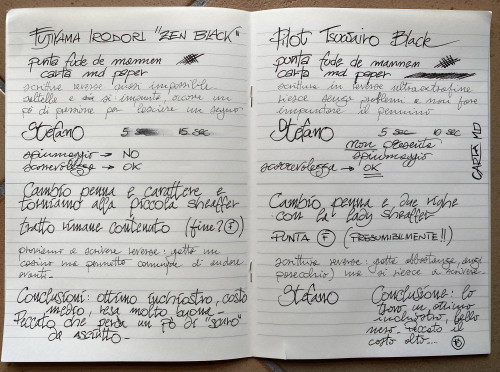 FUJIYAMA IRODORI "ZEN BLACK"
punta fude de mannen
carta md paper
scrittura reverse quasi impossibile
saltella e si impunta, occorre un
pò di pressione per lasciare un segno
Stefano 5 sec 15 sec
spiumaggio → NO
scorrevolezza → OK
Cambio penna e carattere e
torniamo alla piccola sheaffer
tratto rimane contenuto (fine? F)
proviamo a scrivere reverse: gratta un
casino ma permette comunque di andare
avanti.
Conclusioni: ottimo inchiostro, costo
medio, resa molto buona.
Peccato che perda un pò di "scuro"
da asciutto.
Pilot Tsuwairo Black
punta fude de mannen
carta md paper
scrittura in reverse ultraextrafine
riesce senza problemi a non fare
impuntare il pennino
Stefano 5 sec 10 sec
non presenta
spiumaggio
scorrevolezza → OK
CARTA MD
Cambio penna e due righe
con la lady sheaffer
PUNTA F (PRESUMIBILMENTE!!)
scrittura reverse: gratta abbastanza, anzi
parecchio) ma si riesce a scrivere.
Stefano
Conclusione: lo
trovo un ottimo
inchiostro, bello
nero. Peccato il
costo alto....